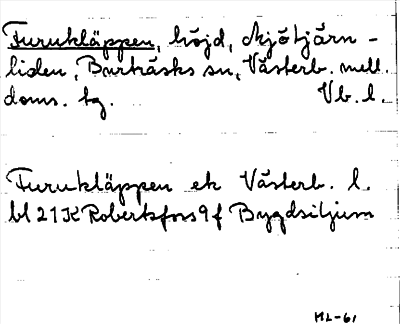 Furukläppen, höjd, Mjötjärn-
liden, Burträsks sn, Västerb. mell.
doms. tg. Vb. l.
Furukläppen ek Västerb. l.
bl 21 K Robertsfors 9 f Bygdsiljum
HL-61